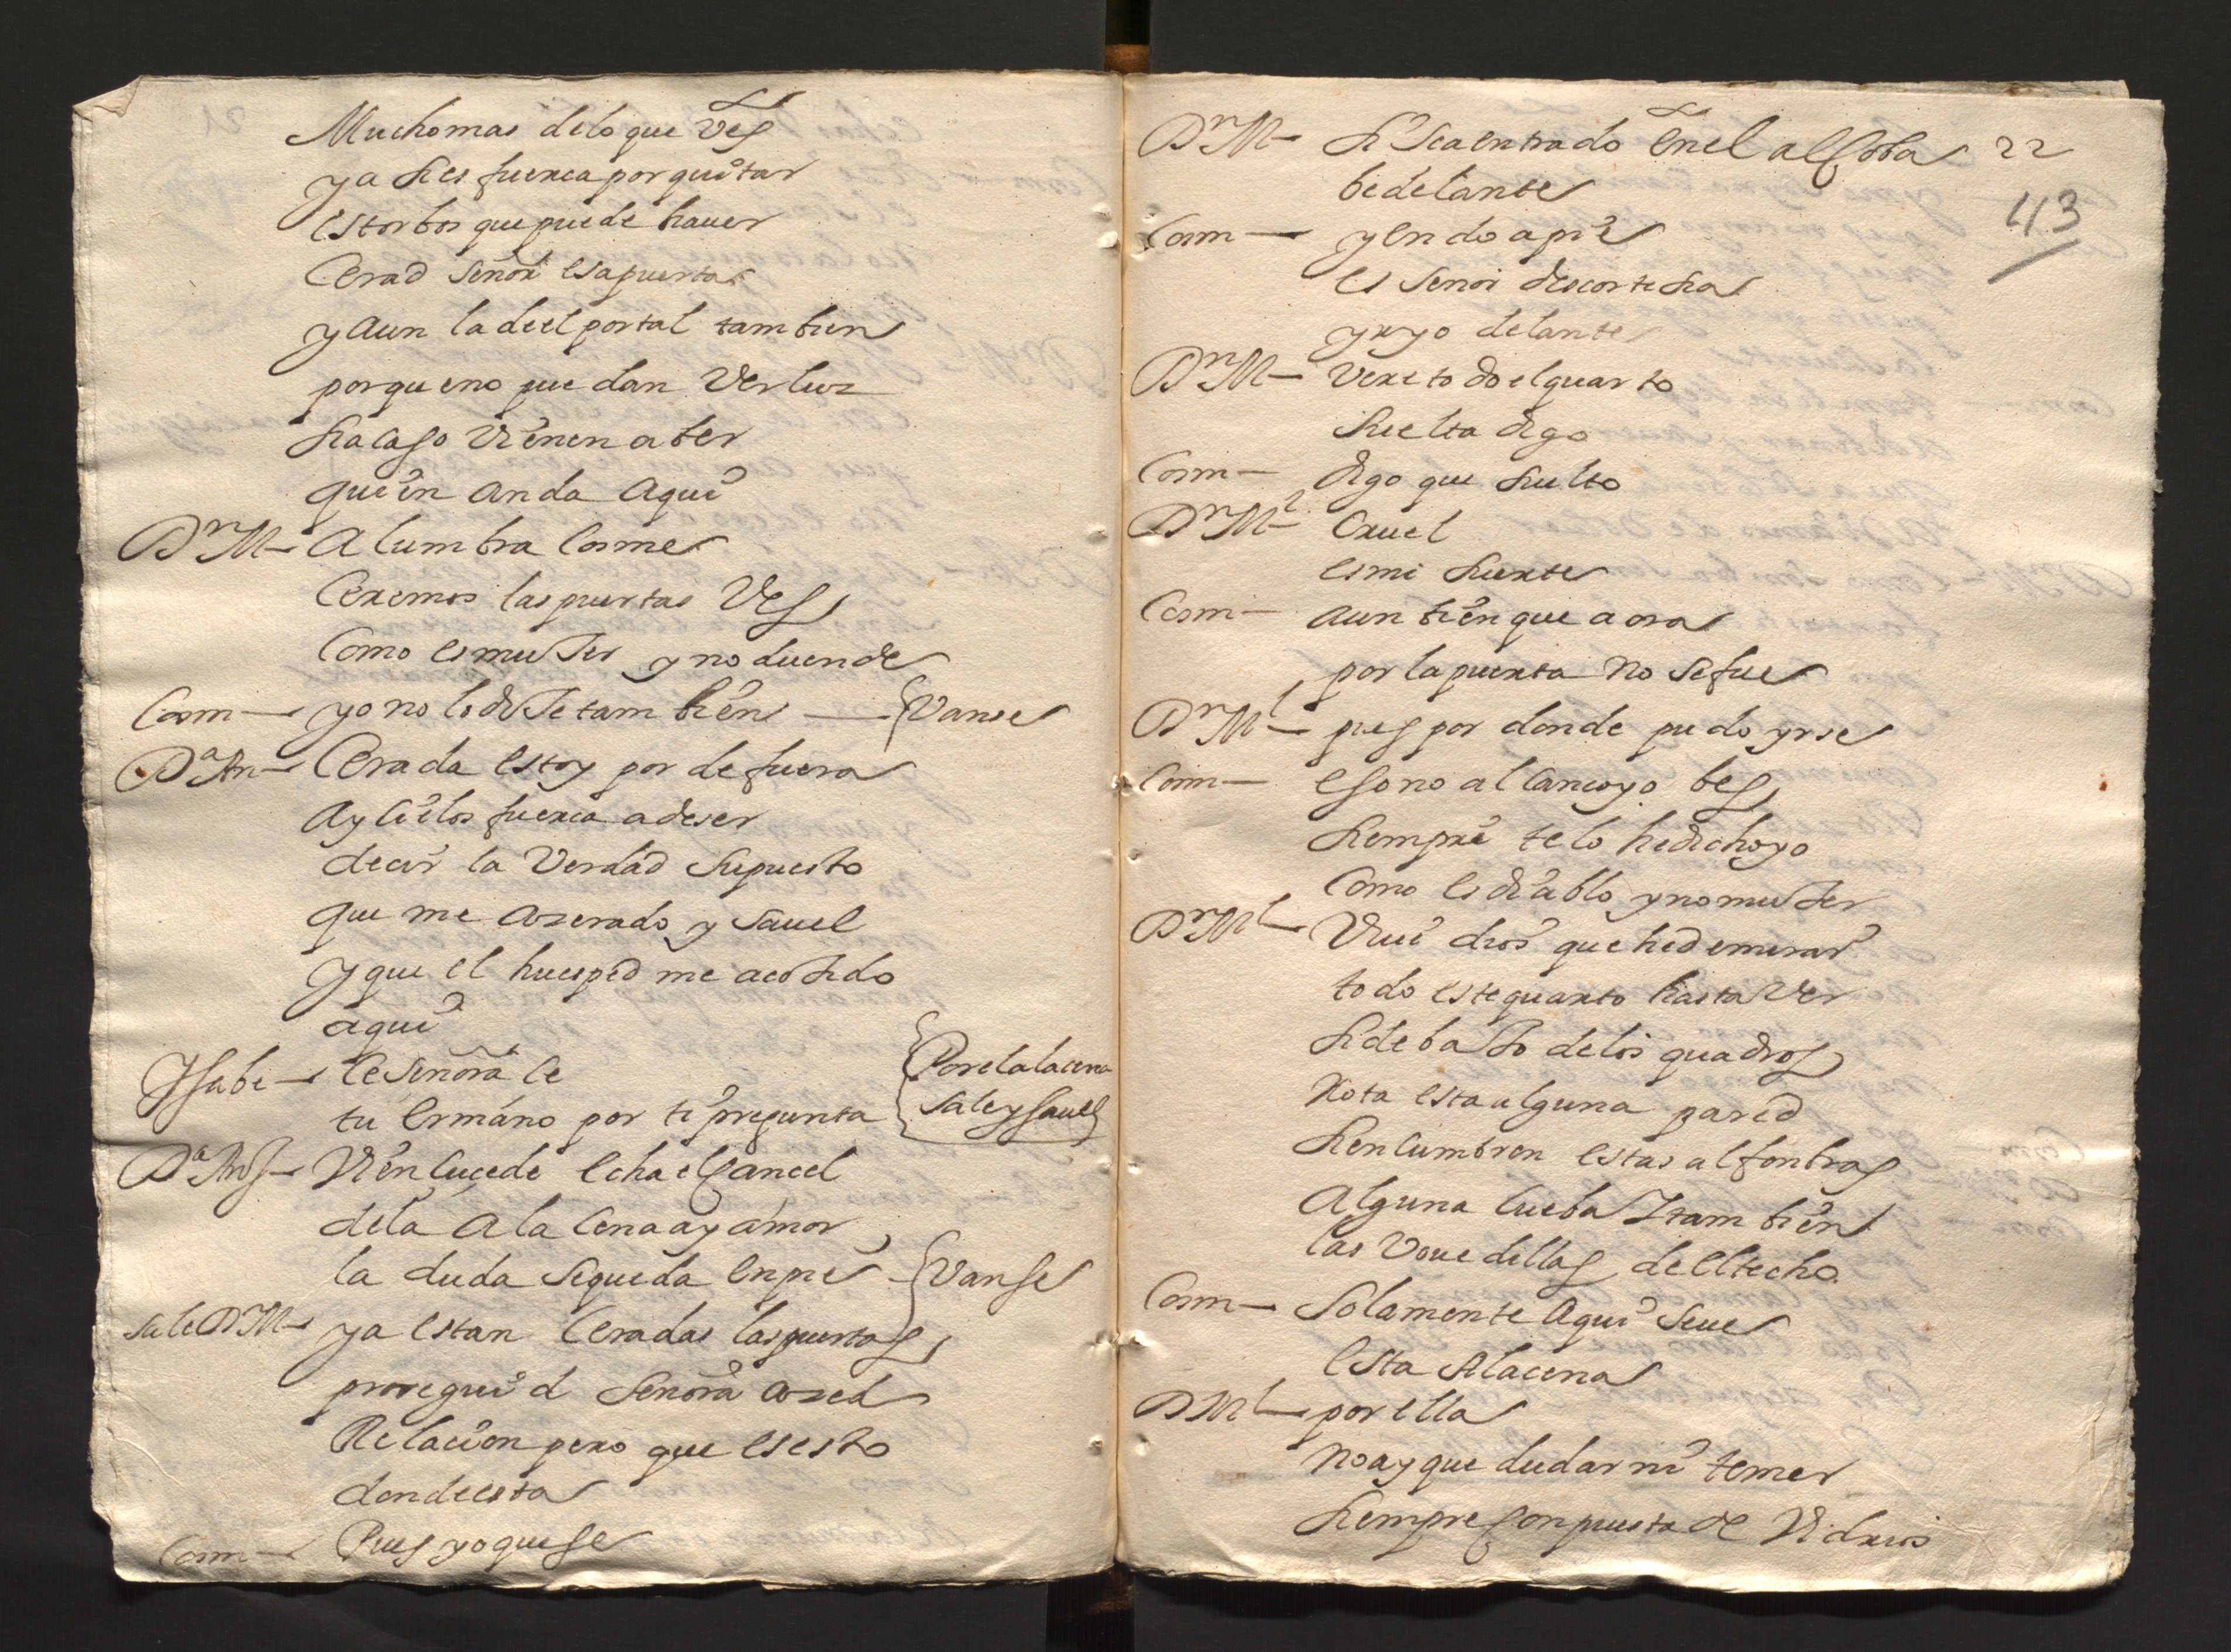 Muchomas deloque Ves
ya Sies fuerca por quitar
estorbos que puede hauer
Cerad Señor esapuerta
y aun la deel portal tambien
porque no puedan Ver luz
Siacaso Vienen a ber
quien anda aqui
Dn M- Alumbra Cosme
Ceremos las puertas Ves
Como es muJer y no duende
Cosm- yo no lo diJe tambien - Vanse
Da An- Cerada estoy por defuera
ay Cielos fuerca a deser
decir la Verdad Supuesto
que me a zerado ysauel
y que el huesped me a coJido
aqui
Ysabe- Ce Señora Ce
tu ermano por ti pregunta
Por el alacena
Sale ysauel
Da Ang- Vien Sucede echa el Cancel
dela Alacena ay amor
la duda Se queda en pie - Vanse
Sale D M- ya estan Ceradas las puertas
proseguid Señora azed
Relacion pero que es esto
donde esta
Cosm- Pues yo que se
Dn M- Si Sea entrado en el alCoba 22
be delante
43
Cosm- yendo a pie
es Señor descortesia
yr yo delante
Dn M- Vere todo el quarto
Suelta digo
Cosm- digo que Suelto
Dn Ml- Cruel
es mi Suerte
Cosm- aun bien que aora
por la puerta no se fue
Dn Ml- pues por donde pudo yrse
Cosm- eso no alcanco yo bes
Siempre te lo he dicho yo
Como es diablo y no muJer
Dn Ml- Viue dios que he de mirar
todo este quarto hasta Ver
Si debaJo de los quadros
Rota esta alguna pared
Si encumbren estas alfonbras
Alguna Cueba I tambien
las Vouedillas de el techo
Cosm- Solamente aqui Seue
esta Alacena
D Ml- por ella
no ay que dudar ni temer
Siempre Conpuesta de Vidrios